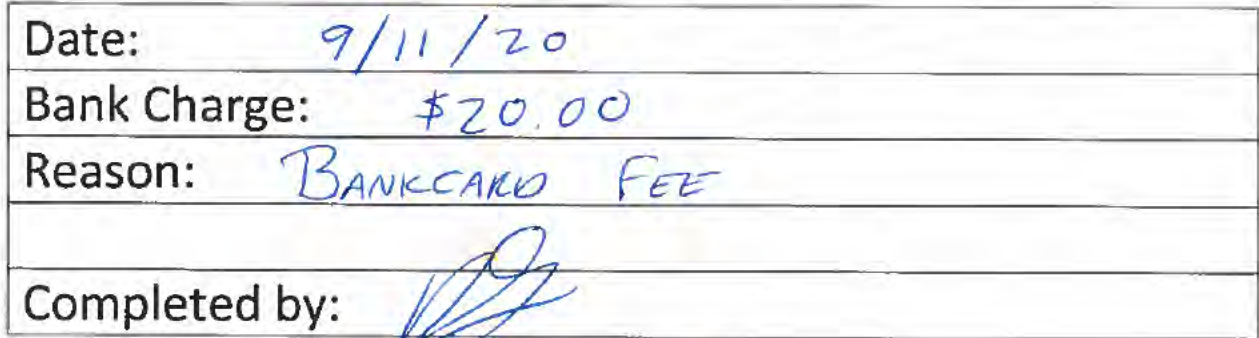 Date: 9/11/20
Bank Charge: $20.00
Reason: BANKCARD FEE
Completed by: